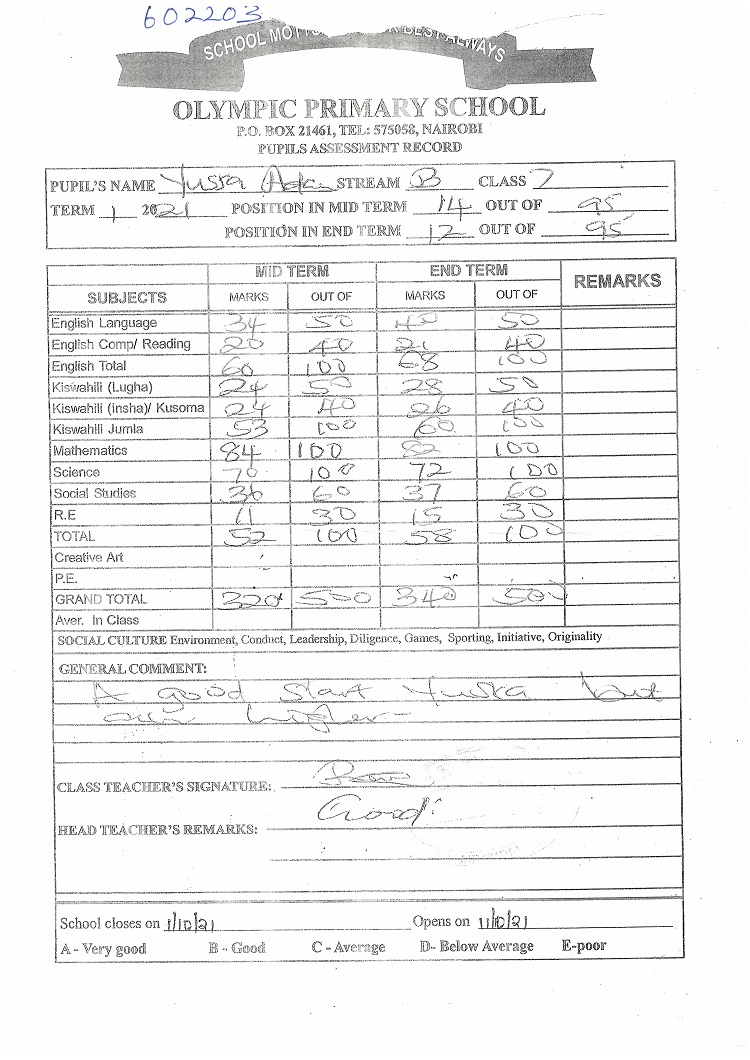 602203
SCHOOL MOTTO BEST ALWAYS
OLYMPIC PRIMARY SCHOOL
P.O. BOX 21461, TEL: 575058, NAIROBI
PUPILS ASSESSMENT RECORD
PUPIL'S NAME Yusra STREAM B CLASS 7
TERM 1 2021 POSITION IN MID TERM 14 OUT OF 95
POSITION IN END TERM 12 OUT OF 95
MID TERM END TERM REMARKS
SUBJECTS MARKS OUT OF MARKS OUT OF
English Language 34 50 40 50
English Comp/ Reading 20 40 21 40
English Total 60 100 68 100
Kiswahili (Lugha) 24 50 28 50
Kiswahili (Insha)/ Kusoma 24 40 26 40
Kiswahili Jumla 53 100 60 100
Mathematics 84 100 82 100
Science 70 100 72 100
Social Studies 36 60 37 60
R.E 11 30 15 30
TOTAL 52 100 58 100
Creative Art
P.E.
GRAND TOTAL 320 500 340 500
Aver. In Class
SOCIAL CULTURE Environment, Conduct, Leadership, Diligence, Games, Sporting, Initiative, Originality
GENERAL COMMENT:
A good start Yusra but
aim higher
CLASS TEACHER'S SIGNATURE:
Good!
HEAD TEACHER'S REMARKS:
School closes on 1/10/21 Opens on 11/10/21
A - Very good B - Good C - Average D- Below Average E-poor